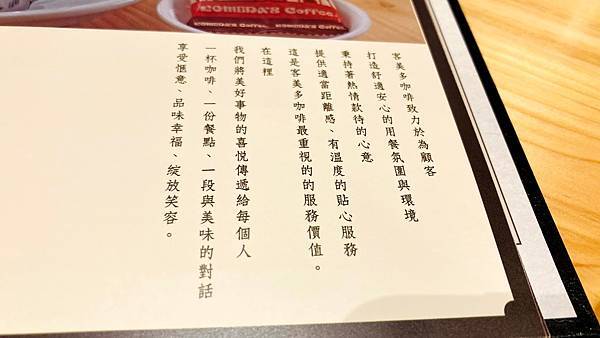 KOMEDA'S Coffee.
客美多咖啡致力於為顧客
打造舒適安心的用餐氛圍與環境
秉持著熱情款待的心意
提供適當距離感、有溫度的貼心服務
這是客美多咖啡最重視的的服務價值。
在這裡
我們將美好事物的喜悅傳遞給每個人
一杯咖啡、一份餐點、一段與美味的對話
享受愜意、品味幸福、綻放笑容。